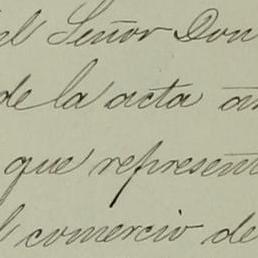 el Señor Don
de la acta an
que represent
l comercio de